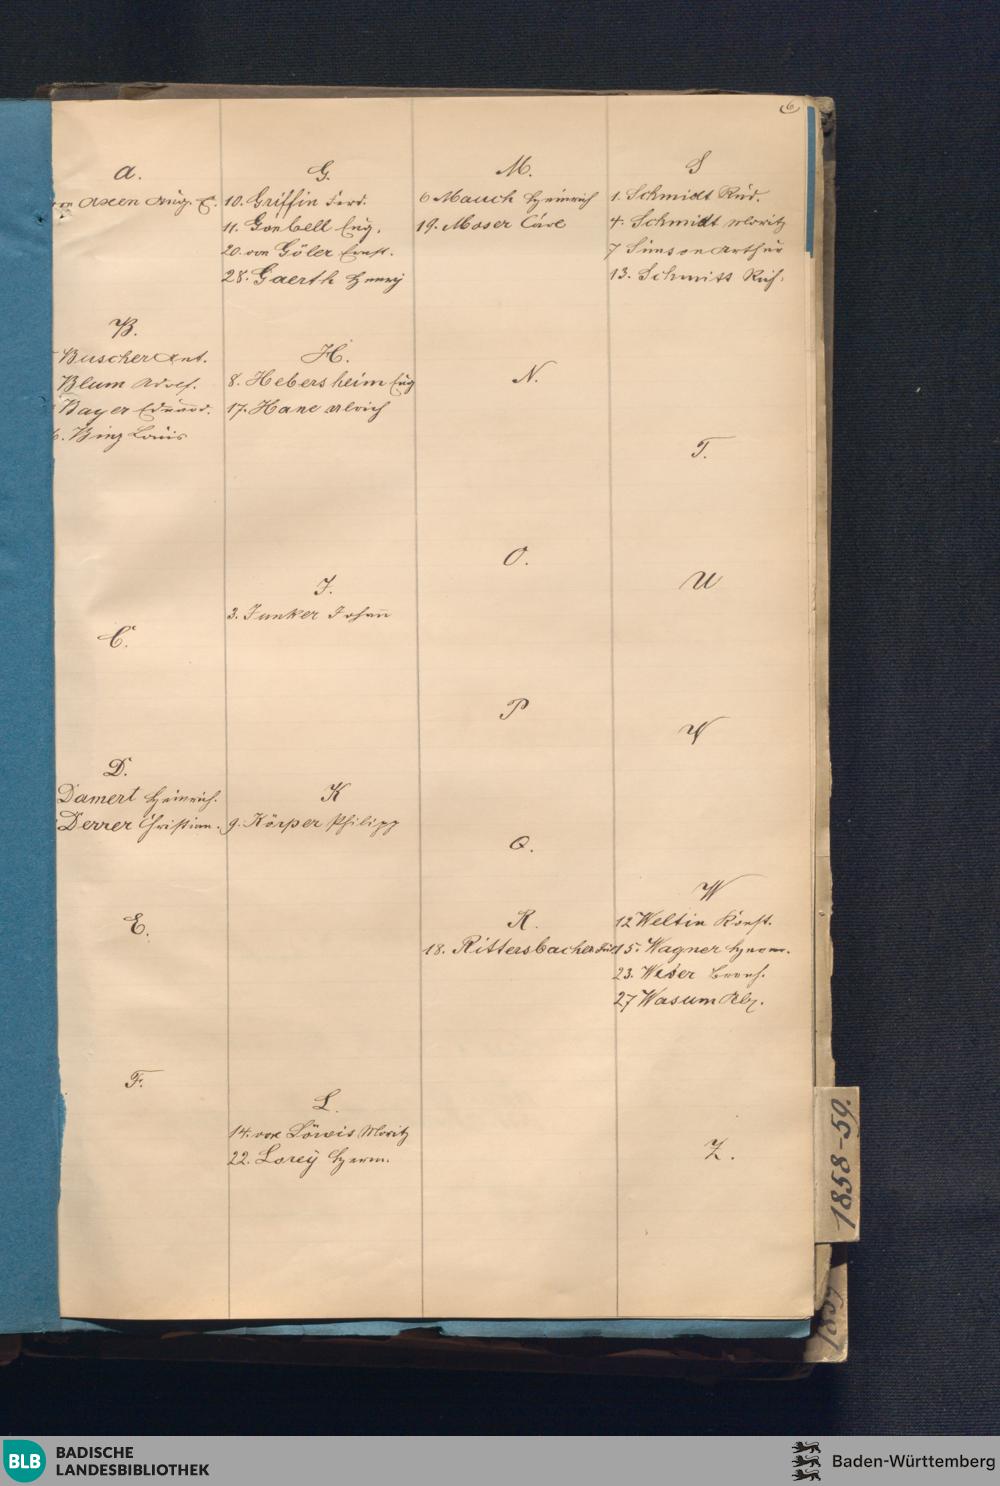 6
A.
Axen Aug. E.
B.
Buscher Ant.
Blum Adolf.
Bayer Eduard.
Binz Louis
C.
D.
Damert Heinrich.
Derrer Christian.
E.
F.
G.
10. Griffin Ferd.
11. Goebell Eug.
20. von Göler Ernst.
28. Gaerth Henry
H.
8. Hebersheim Eug
17. Hane Ulrich
J.
3. Junker Johann
K
9. Körper Philipp
L.
14. von Löwis Moritz
22. Lorey Herm.
M.
6 Mauch Heinrich
19. Moser Carl
N.
O.
P
Q.
R.
18. Rittersbacher
S
1. Schmidt Rud.
4. Schmidt Moritz
7 Simson Arthur
13. Schmitt
T.
U
V
W
12 Weltin Const.
15. Wagner
23. Weser
27 Wasum
Z.
1858-59.
1859
BLB
BADISCHE
LANDESBIBLIOTHEK
Baden-Württemberg